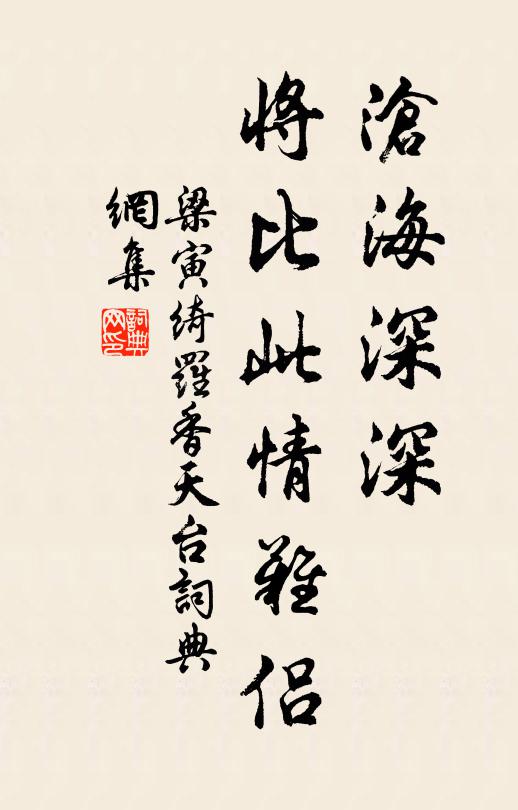 滄海深深
將比此情難侶
梁寅綺羅香天台詞典
網集
詞典
网印